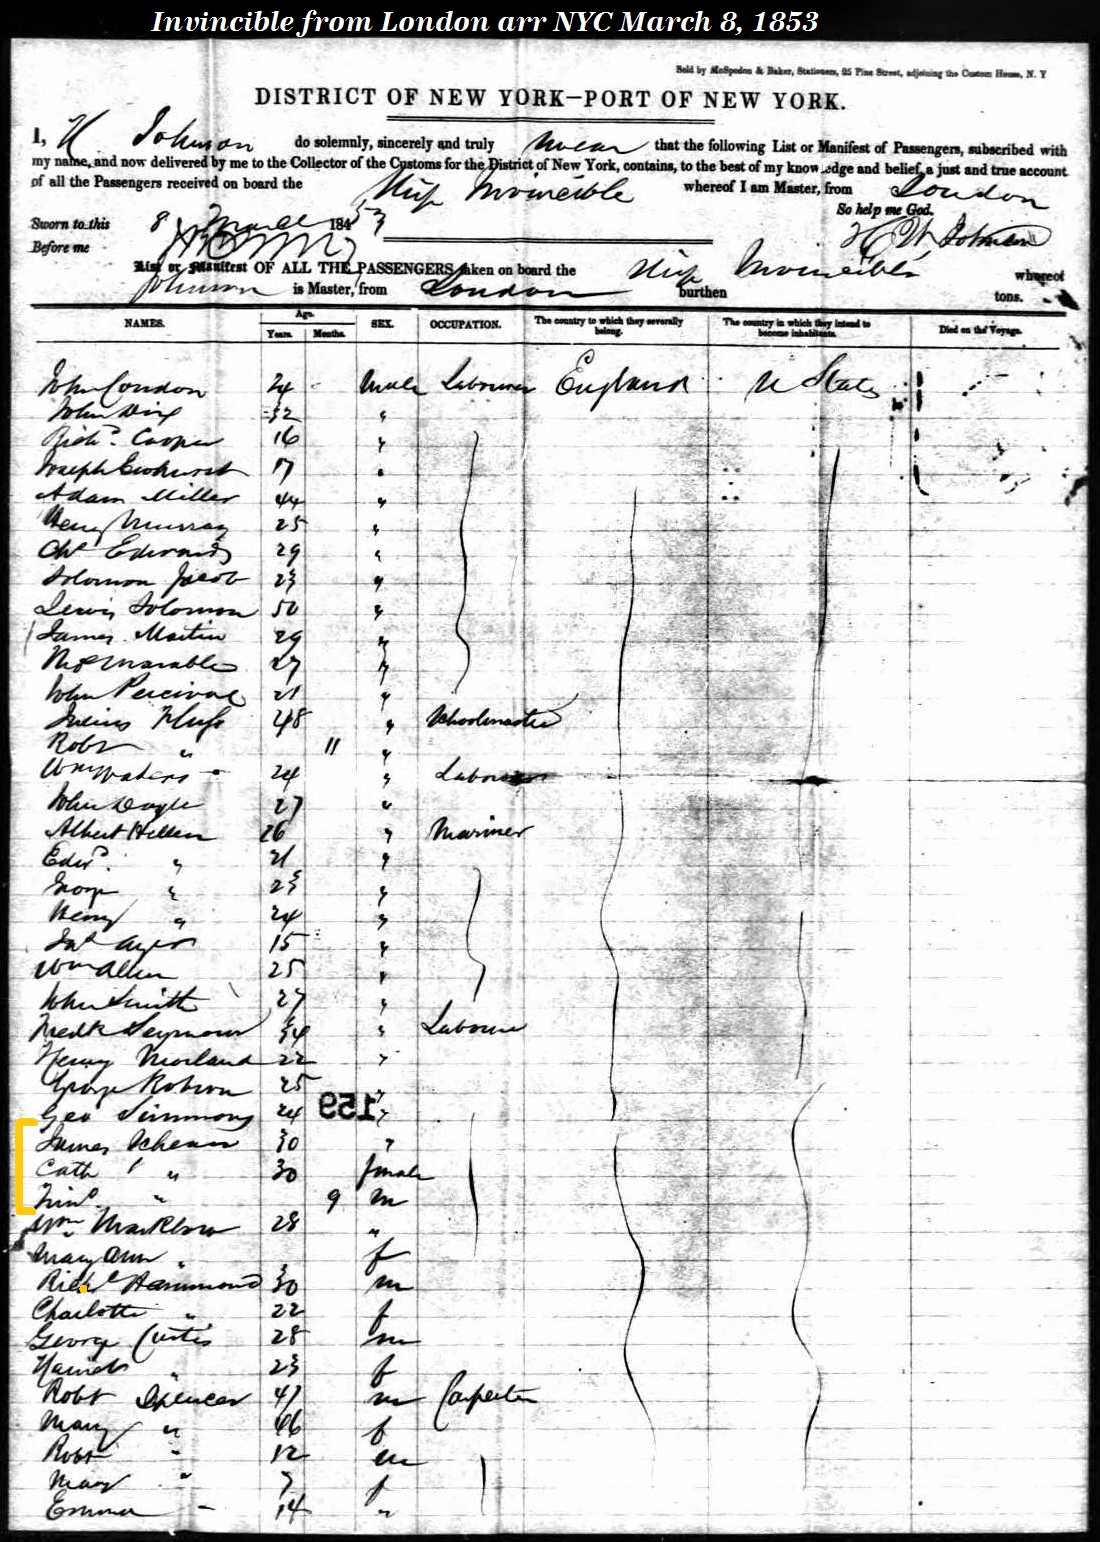 Invincible from London arr NYC March 8, 1853
Sold by McSpedon & Baker, Stationers, 25 Pine Street, adjoining the Custom House, N. Y
DISTRICT OF NEW YORK—PORT OF NEW YORK.
I, H Johnson do solemnly, sincerely and truly swear that the following List or Manifest of Passengers, subscribed with
my name, and now delivered by me to the Collector of the Customs for the District of New York, contains, to the best of my knowledge and belief, a just and true account
of all the Passengers received on board the Ship Invincible whereof I am Master, from London
So help me God.
Sworn to this 8 March 1853
H W Johnson
Before me
List or Manifest OF ALL THE PASSENGERS taken on board the Ship Invincible whereof
Johnson is Master, from London burthen tons.
NAMES. Age. Years. Months. SEX. OCCUPATION. The country to which they severally belong. The country in which they intend to become inhabitants. Died on the Voyage.
John Condon 24 Male Labourer England U States
John Dix 32 "
Richd. Cooper 16 "
Joseph 17 "
Adam Miller 44 "
Henry Murray 25 "
Chs Edwards 29 "
Solomon Jacob 23 "
Lewis Solomon 50 "
James Martin 29 "
Marable 27 "
John Percival 21 "
Julius 48 " Schoolmaster
Robt " 11 "
Wm Waters 24 " Labourer
John Doyle 27 "
Albert Hillen 26 " Mariner
Edwd. " 21 "
George " 23 "
Henry " 24 "
Jas Ayers 15 "
Wm Allen 25 "
John Smith 27 "
Fredk Seymour 34 " Labourer
Henry Morland 22 "
George Robson 25 "
Geo Simmons 24 "
159
James 30 "
Cath " 30 female
" 9 m
Wm 28 "
Mary Ann " f
Richd Hammond 30 m
Charlotte " 22 f
George Curtis 28 m
Harriet " 23 f
Robt Spencer 47 m Carpenter
Mary " 46 f
Robt " 12 m
Mary " 7 f
Emma - 14 "